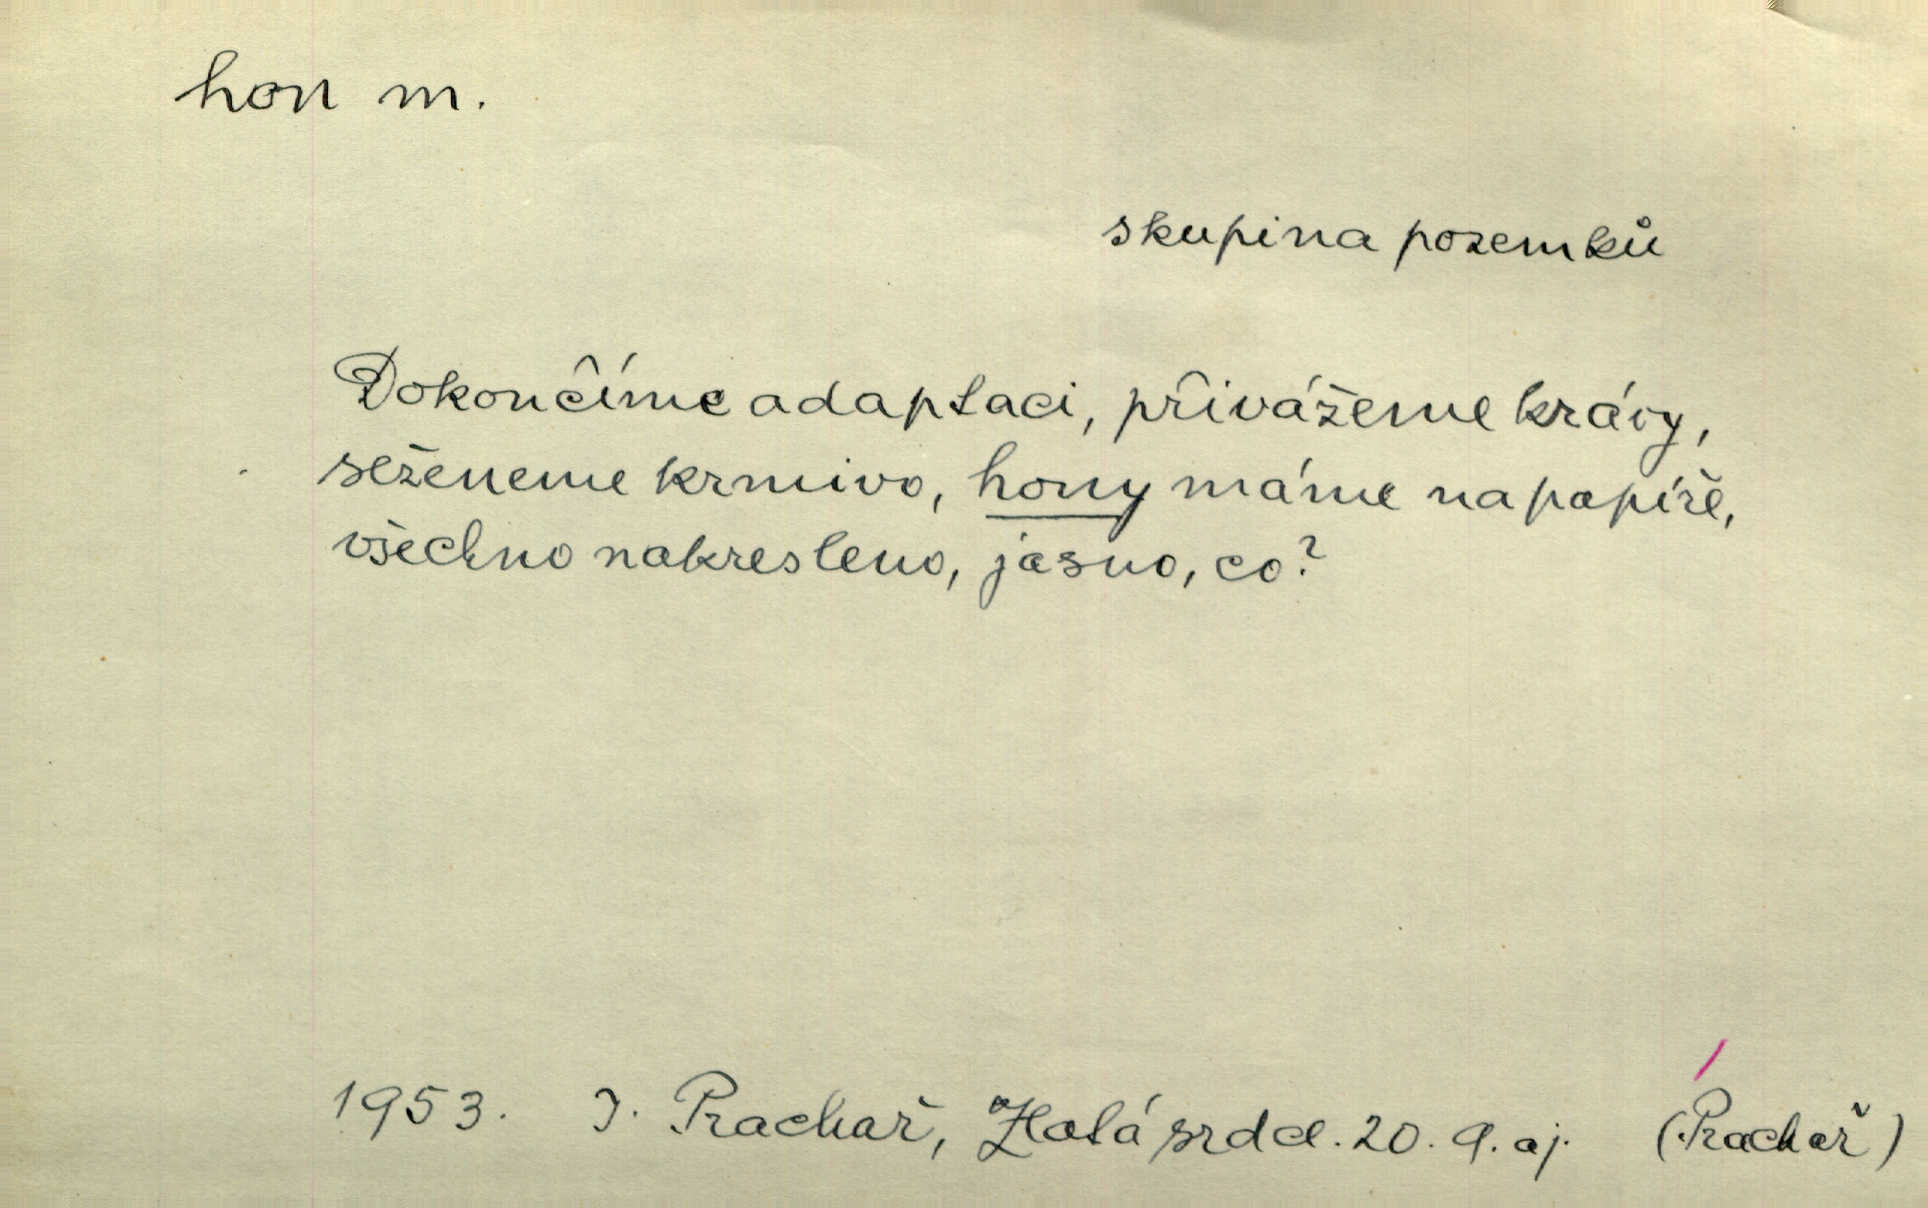 hon m.
skupina pozemků
Dokončíme adaptaci, přivážeme krávy,
seženeme krmivo, hony máme na papíře,
všechno nakresleno, jasno, co?
1953. I. Prachař, Zlatá srdce. 20. 9. aj. (Prachař)